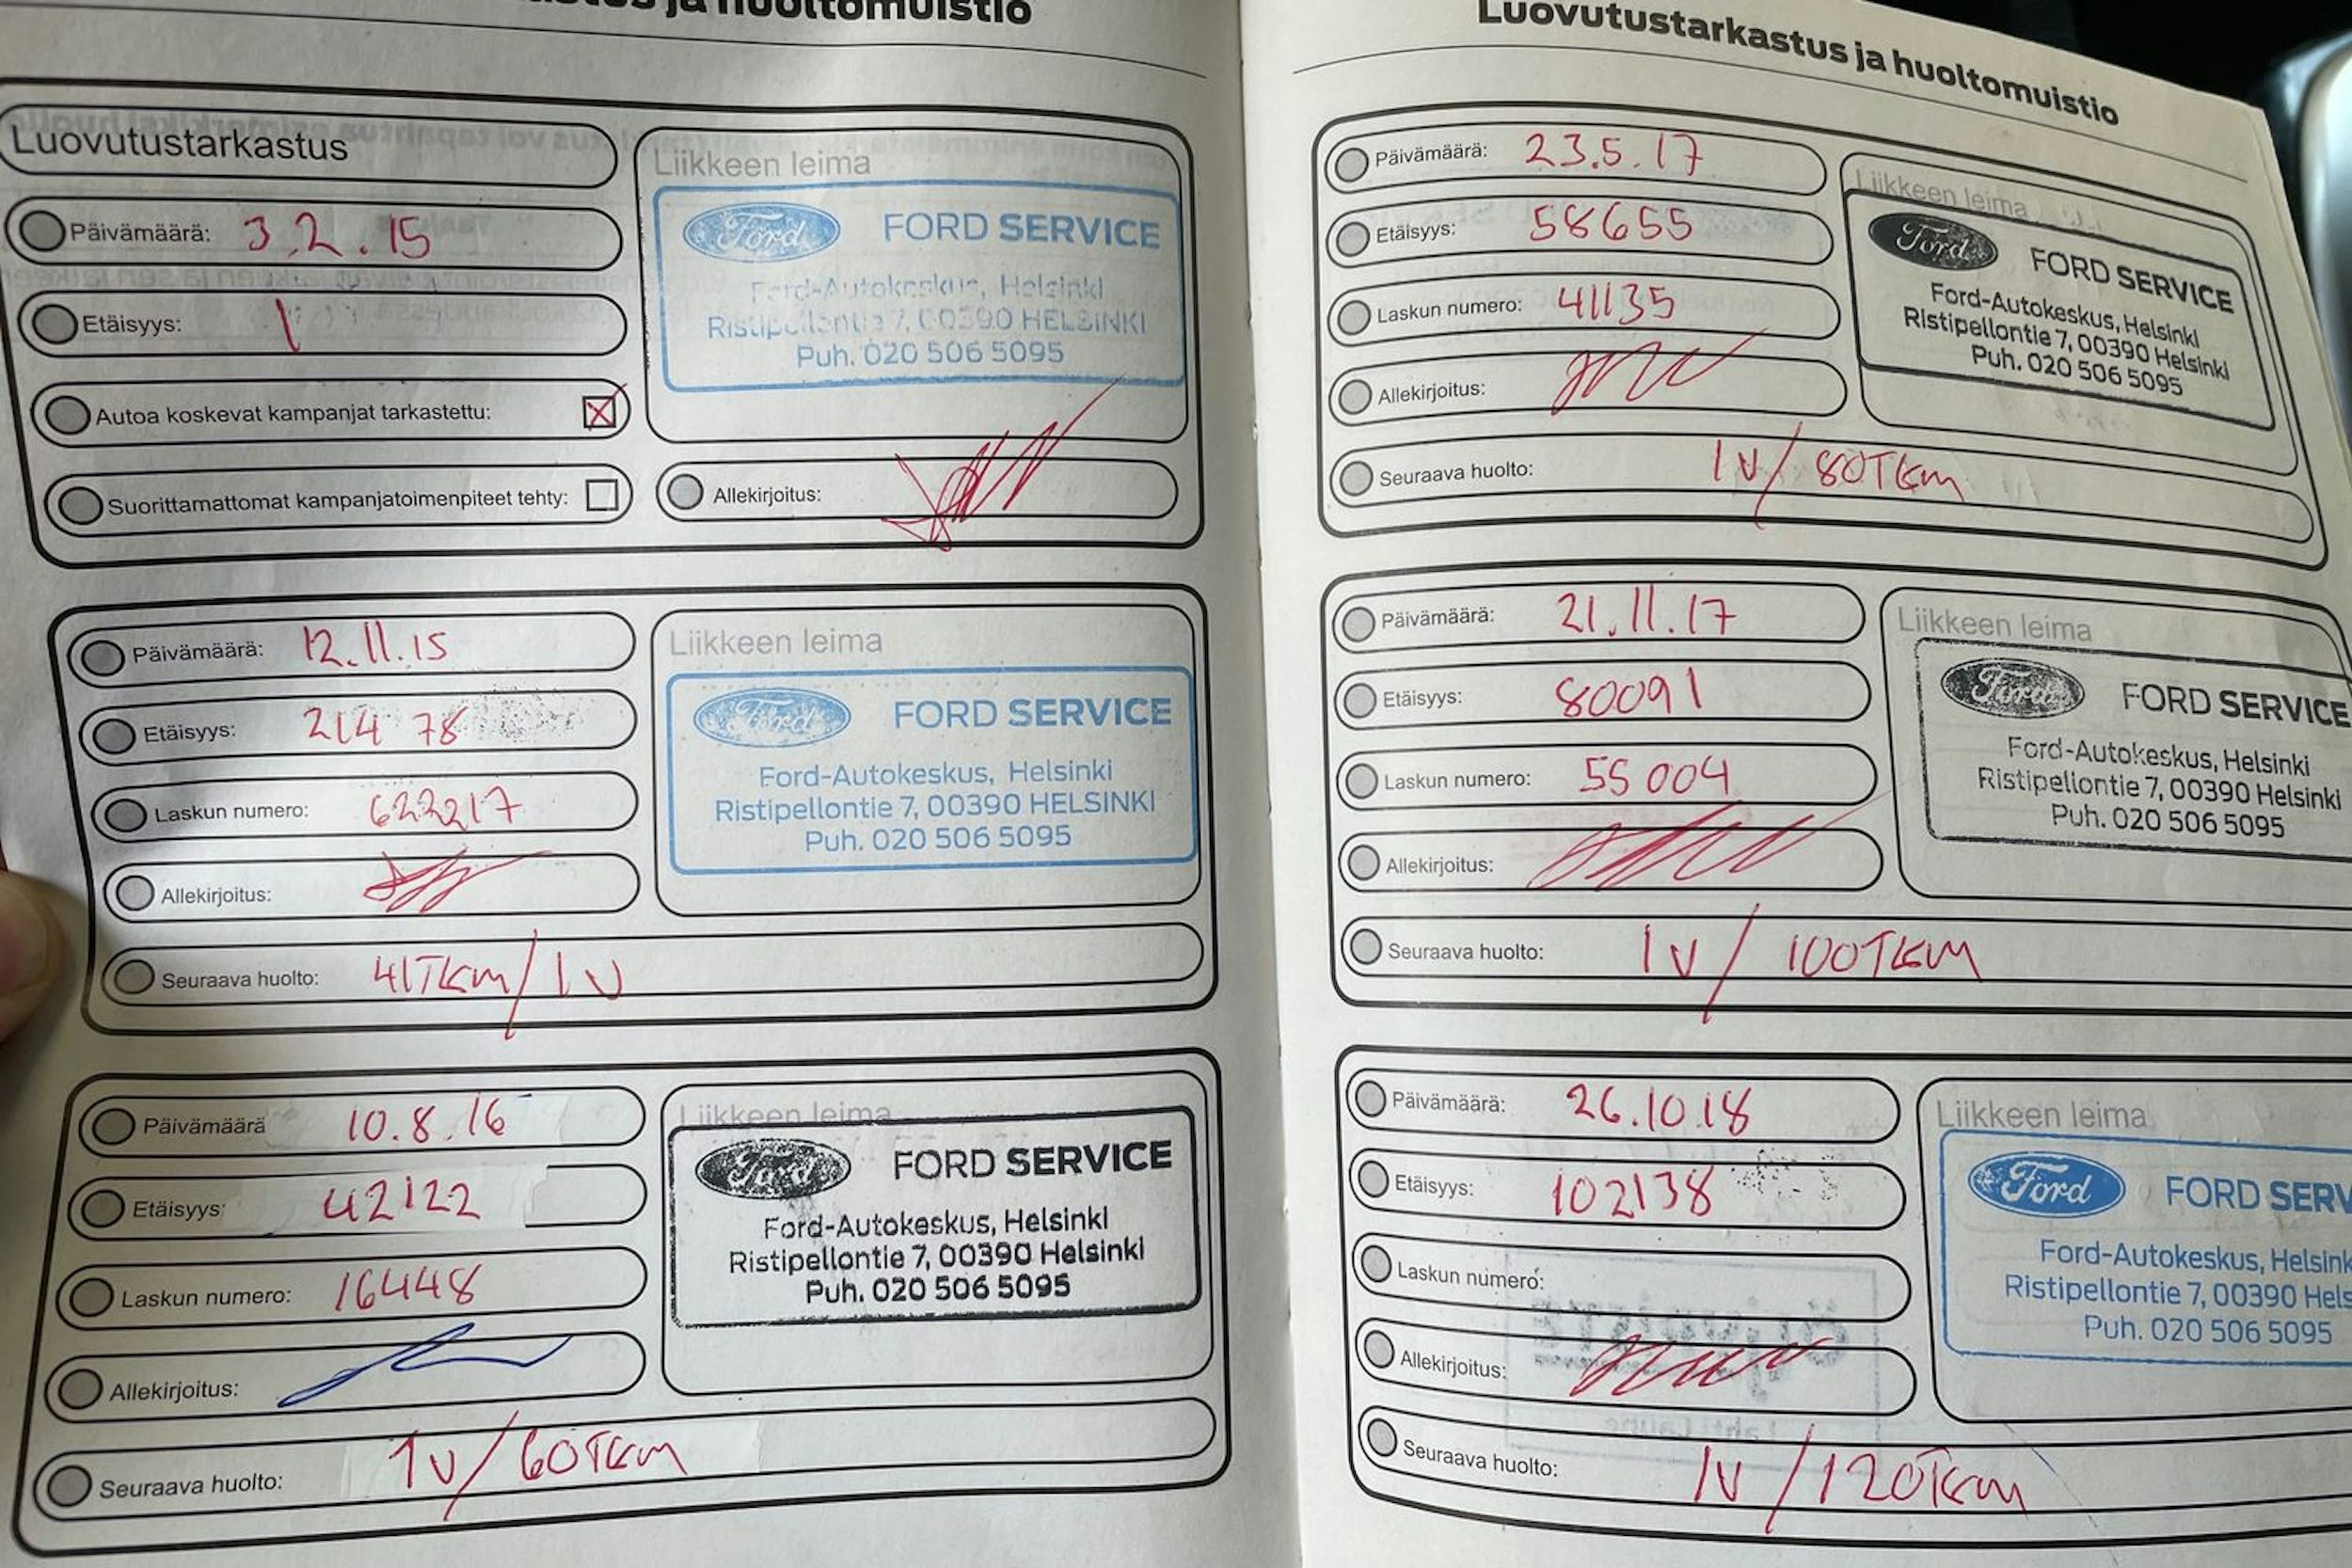 huoltomuistio
Luovutustarkastus
Päivämäärä: 3.2.15
Etäisyys: 1
Autoa koskevat kampanjat tarkastettu: X
Suorittamattomat kampanjatoimenpiteet tehty:
Liikkeen leima
Ford FORD SERVICE
Ford-Autokeskus, Helsinki
Ristipellontie 7, 00390 HELSINKI
Puh. 020 506 5095
Allekirjoitus:
Päivämäärä: 12.11.15
Etäisyys: 21478
Laskun numero: 622217
Allekirjoitus:
Seuraava huolto: 41TKm/1v
Liikkeen leima
Ford FORD SERVICE
Ford-Autokeskus, Helsinki
Ristipellontie 7, 00390 HELSINKI
Puh. 020 506 5095
Päivämäärä 10.8.16
Etäisyys: 42122
Laskun numero: 16448
Allekirjoitus:
Seuraava huolto: 1v/60TKm
Liikkeen leima
Ford FORD SERVICE
Ford-Autokeskus, Helsinki
Ristipellontie 7, 00390 Helsinki
Puh. 020 506 5095
Luovutustarkastus ja huoltomuistio
Päivämäärä: 23.5.17
Etäisyys: 58655
Laskun numero: 41135
Allekirjoitus:
Seuraava huolto: 1v/80TKm
Liikkeen leima
Ford FORD SERVICE
Ford-Autokeskus, Helsinki
Ristipellontie 7, 00390 Helsinki
Puh. 020 506 5095
Päivämäärä: 21.11.17
Etäisyys: 80091
Laskun numero: 55004
Allekirjoitus:
Seuraava huolto: 1v/100TKm
Liikkeen leima
Ford FORD SERVICE
Ford-Autokeskus, Helsinki
Ristipellontie 7, 00390 Helsinki
Puh. 020 506 5095
Päivämäärä: 26.10.18
Etäisyys: 102138
Laskun numero:
Allekirjoitus:
Seuraava huolto: 1v/120TKm
Liikkeen leima
Ford FORD SERV
Ford-Autokeskus, Helsink
Ristipellontie 7, 00390 Hels
Puh. 020 506 5095